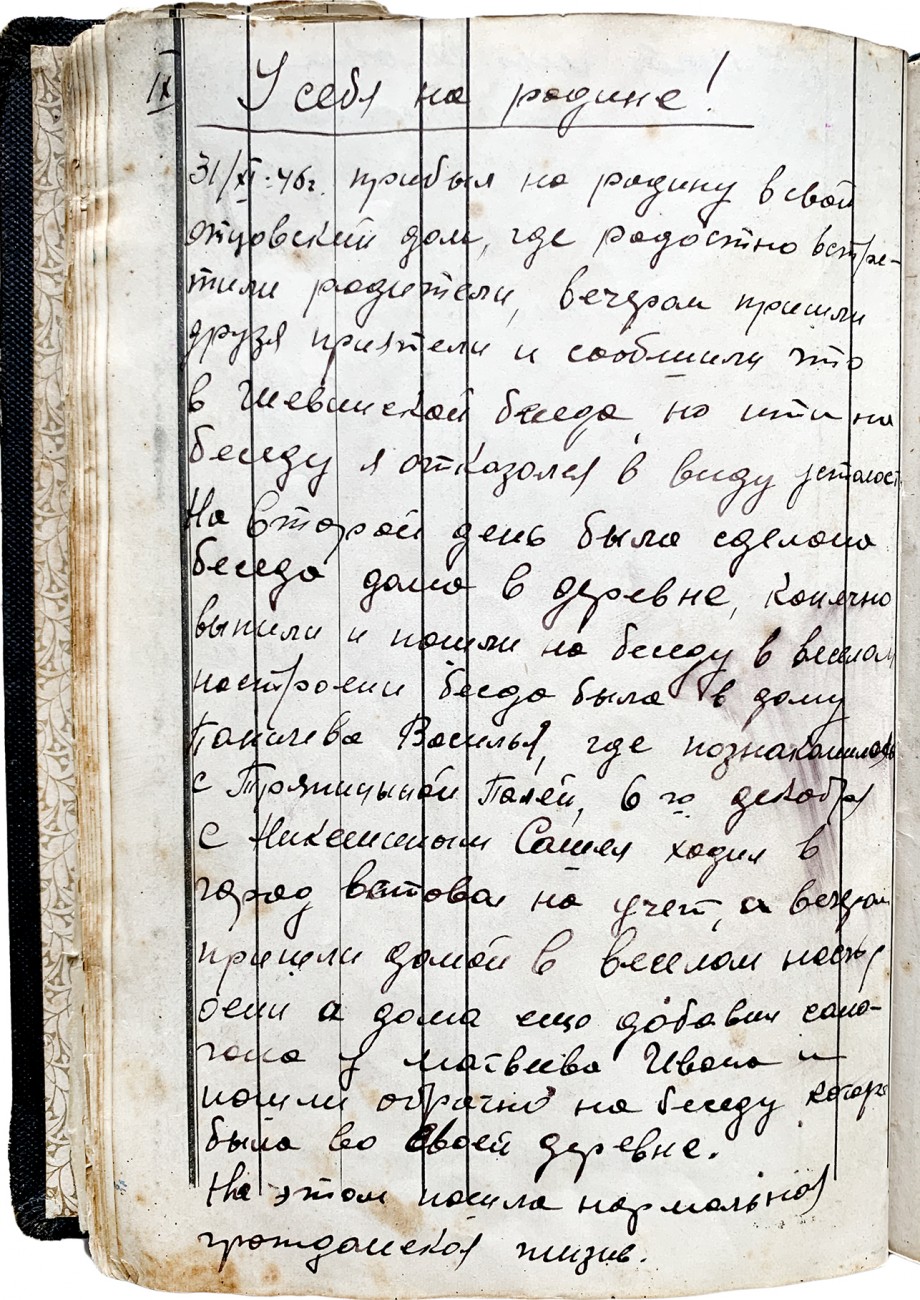 IX У себя на родине!
31/XI-46г. прибыл на родину в свой
отцовский дом, где радостно встре-
тили родители, вечером пришли
друзя приятели и сообшили что
в беседа, но итти на
беседу я отказался в виду усталост
На второй день была сделана
беседа дома в деревне, конечно
выпили и пошли на беседу в веселом
настроени беседа была в дому
Василья, где познакомилсь
с Палей, 6 го декабря
с Никешиным Сашей ходил в
город встовал на учет, а вечером
пришли домой в веселом настр
оени а дома ещо добавил само-
гона у матвеева Ивана и
пошли обрачно на беседу котора
была во своей деревне.
На этом пошла нармольноя
гражданская жизнь.